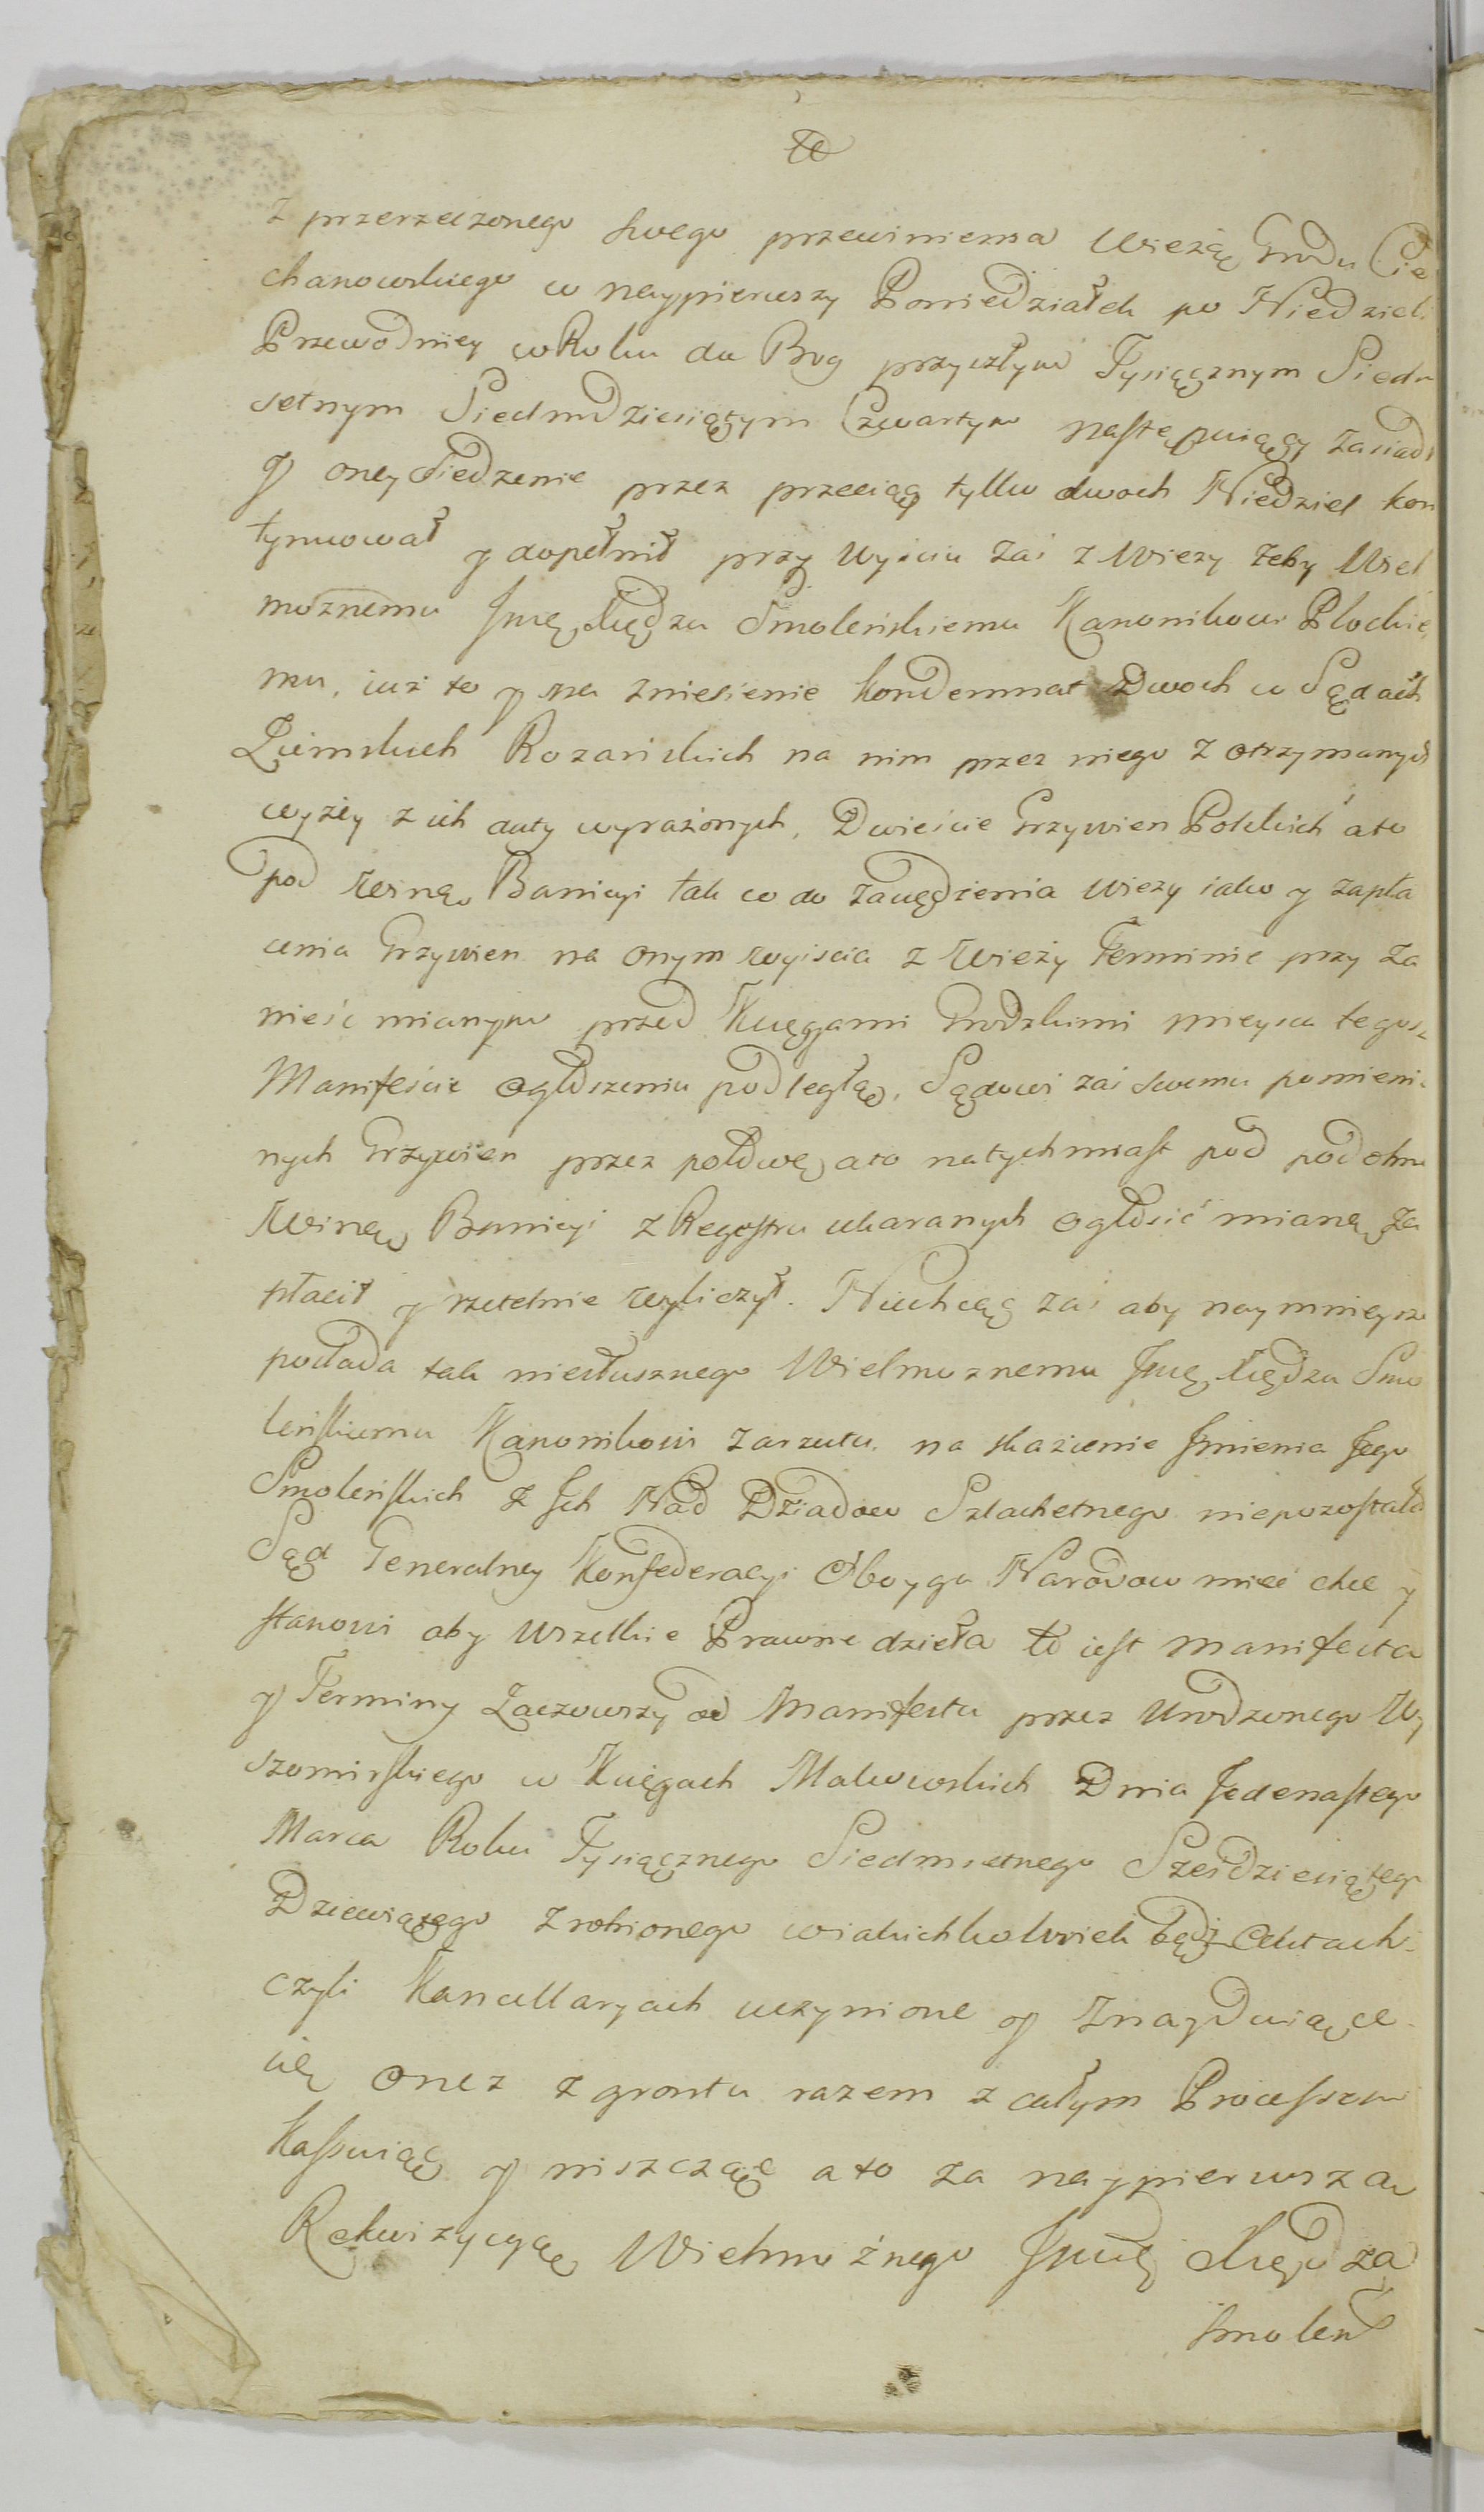 z przerzeczonego swego przewinienia Wieżą Grodu Cie
chanowskiego w naypierwszy Poniedziałek po Niedzieli
Przewodniey w Roku da Bog przyszłym Tysiącznym Siedm
setnym Siedmdziesiątym Czwartym następuiący zasiadł
y oney siedzenie przez przeciąg tylko dwoch Niedziel kon
tynuował y dopełnił przy wyiściu zaś z Wieży żeby Wiel
możnemu Jmę Xiędzu Smoleńskiemu Kanonikowi Płockie
mu, iuż to y na zniesienie kondemnat Dwoch w Sądach
Ziemskich Rożańskich na nim przez niego z otrzymanych
wyżey z ich daty wyrażonych, Dwieście Grzywien Polskich ato
pod winą Banicyi tak co do zasiędzienia Wieży iako y zapła
cenia Grzywien na onym wyiścia z Wieży Terminie przy za
nieść mianym przed Xięgami Grodzkimi mieysca tegosz
Manifeście ogłoszeniu podległą, Sądowi zaś swemu pomieni
nych Grzywien przez połowę ato natychmiast pod podobną
Winą Banicyi z Regestru ukaranych ogłosić mianą za
płacił y rzetelnie wyliczył. Niechcąc zaś aby naymnieysza
poszlada tak niesłusznego Wielmożnemu Jmę Xiędzu Smo
leńskiemu Kanonikowi zarzutu, na skażenie Jmienia Jego
Smoleńskich z Jch Nad Dziadow Szlachetnego niepozostała
Sąd Generalney Konfederacyi Oboyga Narodow mieć chce y
stanowi aby wszelkie Prawne dzieła to iest Manifesta
y Terminy Zacząwszy od Manifestu przez Urodzonego Wy
szomirskiego w Xięgach Makowskich Dnia Jedenastego
Marca Roku Tysiącznego Siedmsetnego Sześdziesiątego
Dziewiątego zrobionego wiakichkolwiek bądź Aktach
czyli Kancellaryach uczynione y znayduiące
się onez z grontu razem z całym Processem
Kassuiąc y niszcząc ato za naypierwszą
Rekwizycyą Wielmożnego Jmę Xiędza
Smoleń